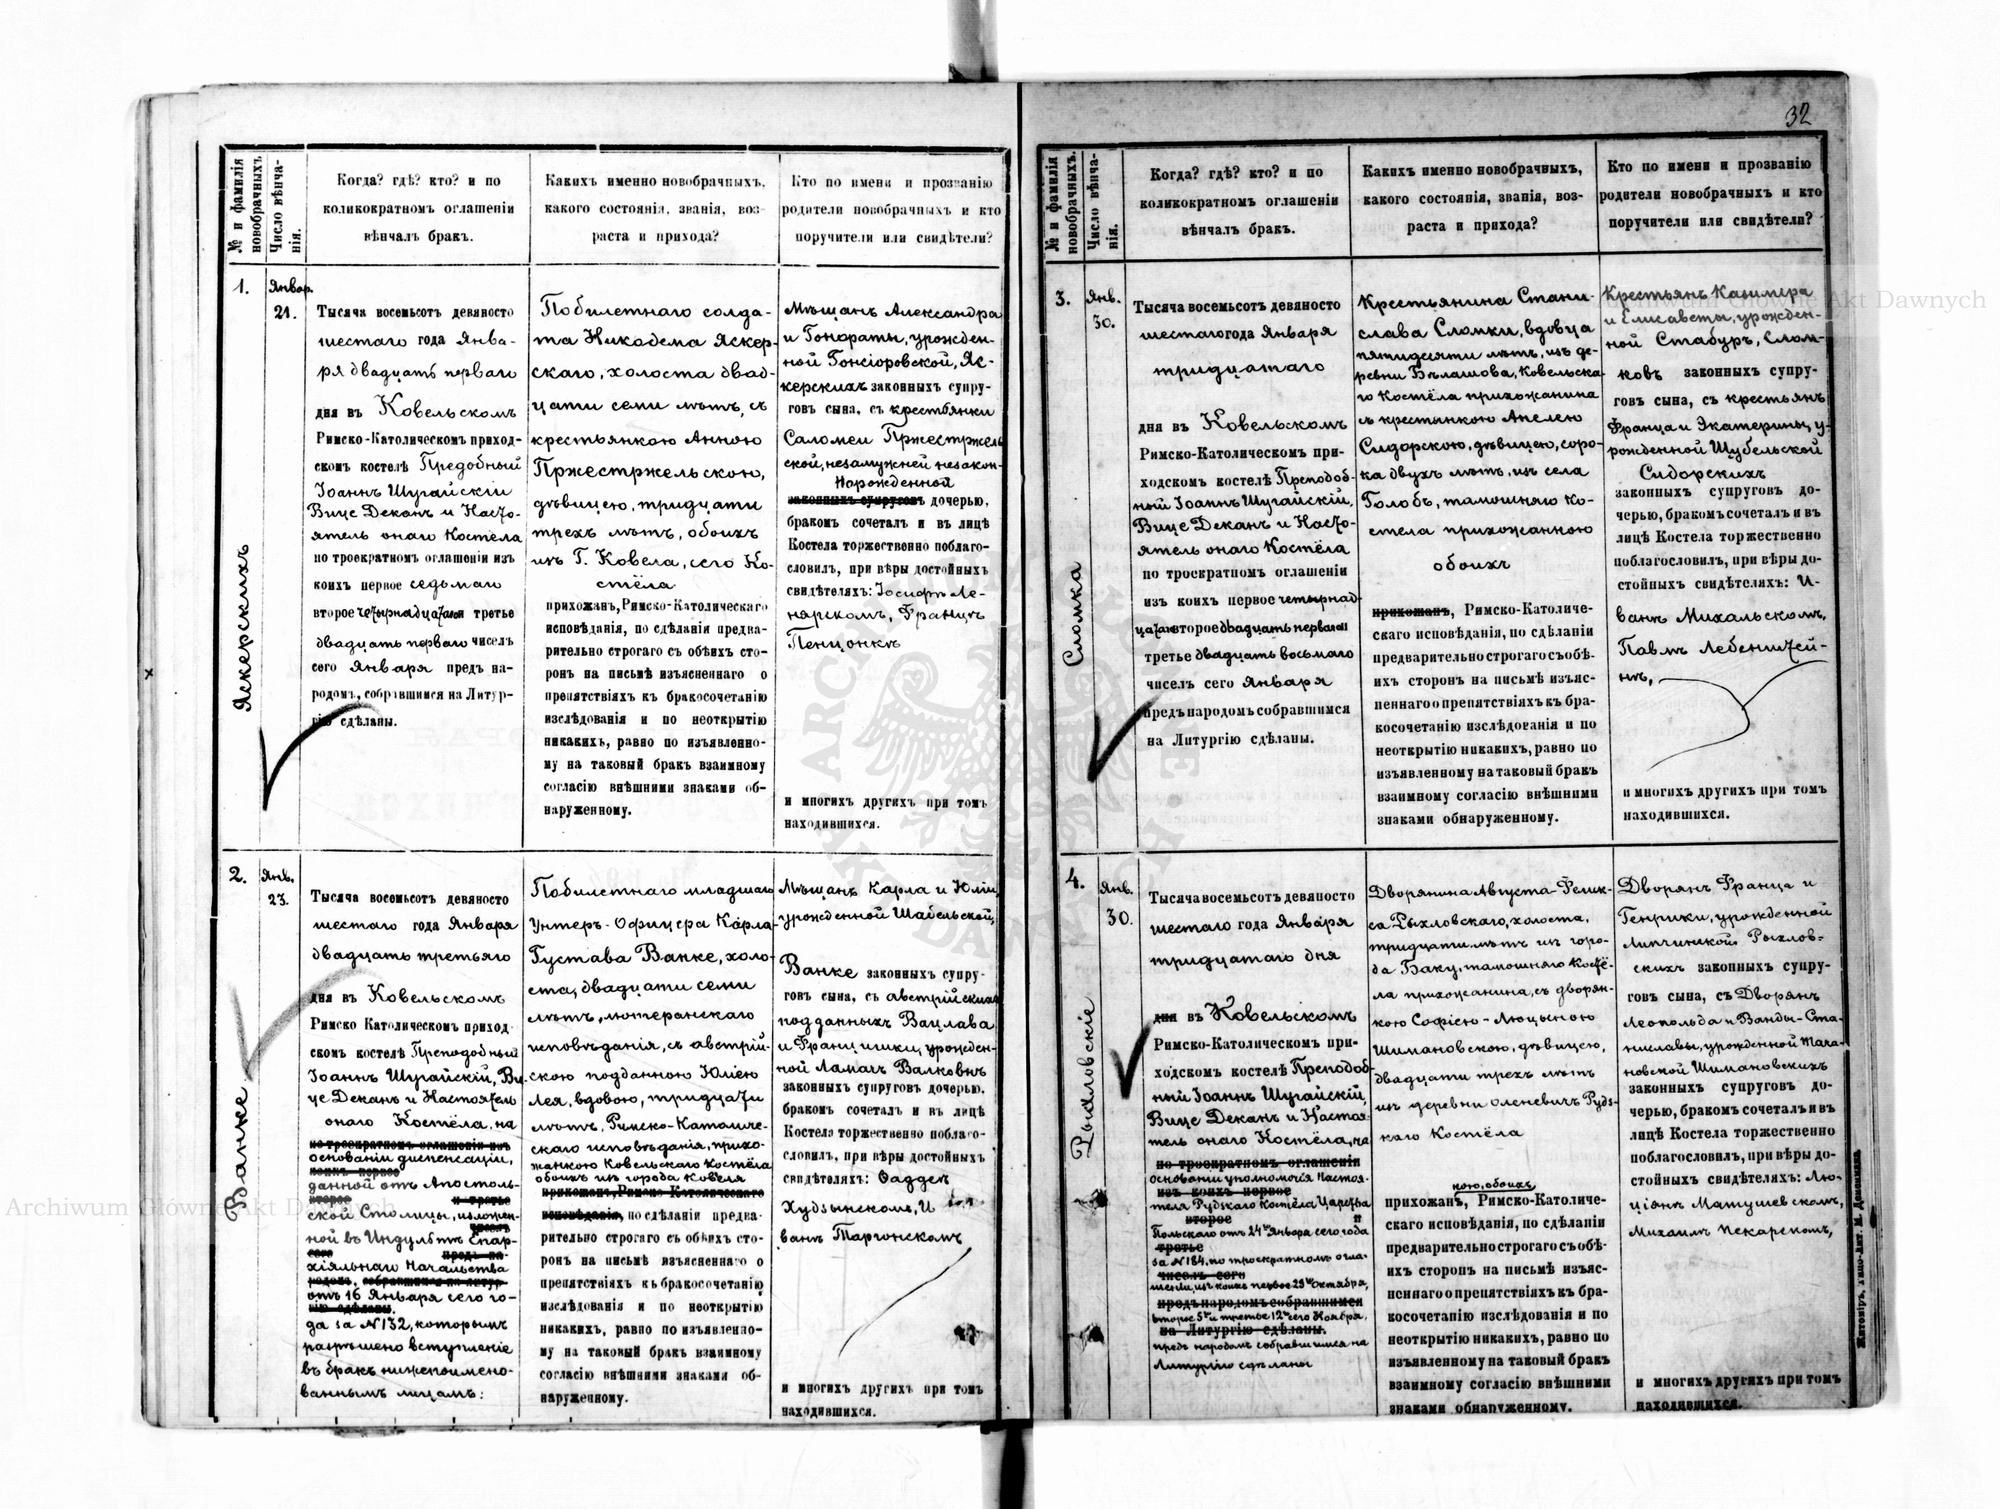 32
№ и фамилія новобрачныхъ.
Число вѣнчанія.
Когда? гдѣ? кто? и по
коликократномъ оглашеніи
вѣнчалъ бракъ.
Какихъ именно новобрачныхъ,
какого состоянія, званія, воз-
раста и прихода?
Кто по имени и прозванію
родители новобрачныхъ и кто
поручители или свидѣтели?
1.
Яскерскихъ
Январ.
21.
Тысяча восемьсот девяносто
шестаго года Янва-
ря двадцать перваго
дня въ Ковельскомъ
Римско-Католическомъ приход-
скомъ костелѣ Предобный
Іоаннъ Шугайскій
Вице Деканъ и Насто-
ятель онаго Костёла
по троекратномъ оглашеніи изъ
коихъ первое седьмаго
второе четырнадцатаго третье
двадцать перваго чиселъ
сего Января предъ на-
родомъ, собравшимся на Литур-
гію сдѣланы.
Побилетнаго солда-
та Никодема Яскер-
скаго, холоста двад-
цати семи лѣтъ, съ
крестьянкою Анною
Пржестржельскою,
дѣвицею, тридцати
трехъ лѣтъ, обоихъ
изъ Г. Ковеля, сего Ко-
стёла
прихожан, Римско-Католическаго
исповѣданія, по сдѣланіи предва-
рительно строгаго съ обѣихъ сто-
ронъ на письмѣ изъясненнаго о
препятствіяхъ къ бракосочетанію
изслѣдованія и по неоткрытію
никакихъ, равно по изъявленно-
му на таковый бракъ взаимному
согласію внѣшними знаками об-
наруженному.
Мѣщанъ Александра
и Гонораты, урожден-
ной Гонсіоровской, Яс-
керскихъ законныхъ супру-
говъ сына, съ крестьянки
Саломеи Пржестржель-
ской, незамужней незакон-
норожденной
законныхъ супруговъ дочерью,
бракомъ сочеталъ и въ лицѣ
Костела торжественно поблаго-
словилъ, при вѣры достойныхъ
свидѣтеляхъ: Іосифѣ Ле-
нарскомъ, Францѣ
Пенцонкѣ
и многихъ другихъ при томъ
находившихся.
2.
Ванке
Янв.
23.
Тысяча восемьсот девяносто
шестаго года Января
двадцать третьяго
дня въ Ковельскомъ
Римско Католическомъ приход-
скомъ костелѣ Преподобный
Іоаннъ Шугайскій, Ви-
це Деканъ и Настоятель
онаго Костёла, на
по троекратномъ оглашеніи изъ
основаніи диспенсаціи,
коихъ первое
данной отъ Апостоль-
второе и третье
ской Столицы, изложен-
чиселъ
ной въ Индультѣ Епар-
сего предъ на-
хіяльнаго Начальства
родомъ, собравшимся на Литур-
отъ 16 Января сего го-
гію сдѣланы.
да за №132, которымъ
разрѣшено вступленіе
въ бракъ нижепоимено-
ваннымъ лицамъ:
Побилетнаго младшаго
Унтеръ-Офицера Карла-
Густава Ванке, холо-
ста, двадцати семи
лѣтъ, лютеранскаго
исповѣданія, съ австрій-
скою подданною Юліею
Лея, вдовою, тридцати
лѣтъ, Римско-Католиче-
скаго исповѣданія, прихо-
жанкою Ковельскаго Костёла
обоихъ изъ города Ковеля
прихожан, Римско-Католическаго
исповѣданія, по сдѣланіи предва-
рительно строгаго съ обѣихъ сто-
ронъ на письмѣ изъясненнаго о
препятствіяхъ къ бракосочетанію
изслѣдованія и по неоткрытію
никакихъ, равно по изъявленно-
му на таковый бракъ взаимному
согласію внѣшними знаками об-
наруженному.
Мѣщанъ Карла и Юліи,
урожденной Шабельской,
Ванке законныхъ супру-
говъ сына, съ австрійскихъ
подданныхъ Вацлава
и Францишки, урожден-
ной Ламачъ Валковыхъ
законныхъ супруговъ дочерью,
бракомъ сочеталъ и въ лицѣ
Костела торжественно поблаго-
словилъ, при вѣры достойныхъ
свидѣтеляхъ: Фаддеѣ
Худзынскомъ, И
ванѣ Таргонскомъ
и многихъ другихъ при томъ
находившихся.
№ и фамилія новобрачныхъ.
Число вѣнчанія.
Когда? гдѣ? кто? и по
коликократномъ оглашеніи
вѣнчалъ бракъ.
Какихъ именно новобрачныхъ,
какого состоянія, званія, воз-
раста и прихода?
Кто по имени и прозванію
родители новобрачныхъ и кто
поручители или свидѣтели?
3.
Сломка
Янв.
30.
Тысяча восемьсот девяносто
шестаго года Января
тридцатаго
дня въ Ковельскомъ
Римско-Католическомъ при-
ходскомъ костелѣ Преподоб-
ный Іоаннъ Шугайскій,
Вице Деканъ и Насто-
ятель онаго Костёла
по троекратномъ оглашеніи
изъ коихъ первое четырнад-
цатаго второе двадцать перваго
третье двадцать восьмаго
чиселъ сего Января
предъ народомъ собравшимся
на Литургію сдѣланы.
Крестьянина Стани-
слава Сломки, вдовца
пятидесяти лѣтъ, изъ де-
ревни Бѣлашова, Ковельска-
го Костёла прихожанина
съ крестьянкою Анелею
Сидорскою, дѣвицею, соро-
ка двухъ лѣтъ, изъ села
Голобъ, тамошняго Ко-
стела прихожанкою
обоихъ
прихожан, Римско-Католиче-
скаго исповѣданія, по сдѣланіи
предварительно строгаго съ обѣ-
ихъ сторонъ на письмѣ изъяс-
неннаго о препятствіяхъ къ бра-
косочетанію изслѣдованія и по
неоткрытію никакихъ, равно по
изъявленному на таковый бракъ
взаимному согласію внѣшними
знаками обнаруженному.
Крестьянъ Казимера
и Елисаветы, урожден-
ной Стабуръ, Слом-
ковъ законныхъ супру-
говъ сына, съ крестьянъ
Франца и Экатерины, у-
рожденной Шубельской
Сидорскихъ
законныхъ супруговъ до-
черью, бракомъ сочеталъ и въ
лицѣ Костела торжественно
поблагословилъ, при вѣры до-
стойныхъ свидѣтеляхъ: И-
ванѣ Михальскомъ,
Павлѣ Лебенштей-
нѣ,
и многихъ другихъ при томъ
находившихся.
4.
Рыхловскіе
Янв.
30.
Тысяча восемьсот девяносто
шестаго года Января
тридцатаго дня
дня въ Ковельскомъ
Римско-Католическомъ при-
ходскомъ костелѣ Преподоб
ный Іоаннъ Шугайскій,
Вице Деканъ и Настоя-
тель онаго Костёла, на
по троекратномъ оглашеніи
основаніи уполномочія Настоя-
изъ коихъ первое
теля Рудзкаго Костёла Царства
второе
Польскаго отъ 24го Января сего года
третье
за №184, по троекратномъ огла-
чиселъ сего
шеніи, изъ коихъ первое 29го Октября,
предъ народомъ собравшимся
второе 5го и третье 12го сего Ноября,
на Литургію сдѣланы.
предъ народомъ собравшимся на
Литургію сдѣланы
Дворянина Августа-Фелик-
са Рыхловскаго, холоста,
тридцати лѣтъ изъ горо-
да Баку, тамошняго Костё-
ла прихожанина, съ дворян-
кою Софіею-Люцыною
Шимановскою, дѣвицею,
двадцати трехъ лѣтъ
изъ деревни Оленевичъ Рудз-
каго Костёла
кою, обоихъ
прихожанъ, Римско-Католиче-
скаго исповѣданія, по сдѣланіи
предварительно строгаго съ обѣ-
ихъ сторонъ на письмѣ изъяс-
неннаго о препятствіяхъ къ бра-
косочетанію изслѣдованія и по
неоткрытію никакихъ, равно по
изъявленному на таковый бракъ
взаимному согласію внѣшними
знаками обнаруженному.
Дворянъ Франца и
Генрики, урожденной
Липчинской Рыхлов-
скихъ законныхъ супру-
говъ сына, съ Дворянъ
Леопольда и Ванды-Ста-
ниславы, урожденной Тача-
новской Шимановскихъ
законныхъ супруговъ до-
черью, бракомъ сочеталъ и въ
лицѣ Костела торжественно
поблагословилъ, при вѣры до-
стойныхъ свидѣтеляхъ: Лю-
ціянѣ Матушевскомъ,
Михаилѣ Пекарскомъ,
и многихъ другихъ при томъ
находившихся.
Житомiръ, Типо-лит. М. Дененмана
Archiwum Główne Akt Dawnych
Archiwum Główne Akt Dawnych
ARCHIWUM GŁÓWNE AKT DAWNYCH